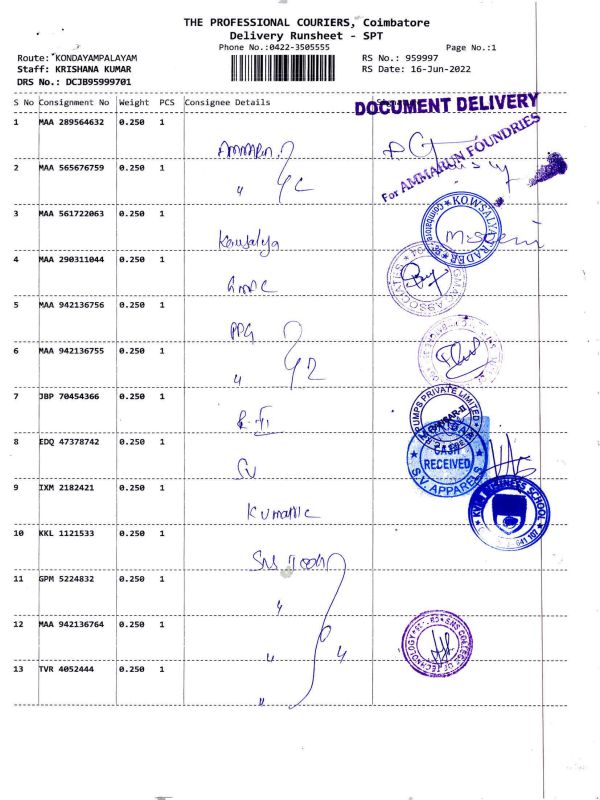 THE PROFESSIONAL COURIERS, Coimbatore
Delivery Runsheet - SPT
Phone No.:0422-3505555
Page No.:1
Route: KONDAYAMPALAYAM
RS No.: 959997
Staff: KRISHANA KUMAR
RS Date: 16-Jun-2022
DRS No.: DCJB95999701
S No Consignment No Weight PCS Consignee Details
DOCUMENT DELIVERY
1 MAA 289564632 0.250 1
For AMMARUN FOUNDRIES
2 MAA 565676759 0.250 1
3 MAA 561722063 0.250 1 Kowsalya
KOWSALYA TRADERS
4 MAA 290311044 0.250 1
5 MAA 942136756 0.250 1 PPG
6 MAA 942136755 0.250 1 "
7 JBP 70454366 0.250 1
PUMPS PRIVATE LIMITED
8 EDQ 47378742 0.250 1
CASH
RECEIVED
S.V. APPARELS
9 IXM 2182421 0.250 1
BUSINESS SCHOOL
641 107
10 KKL 1121533 0.250 1 SNS
11 GPM 5224832 0.250 1 "
12 MAA 942136764 0.250 1 "
SNS COLLEGE OF TECHNOLOGY
13 TVR 4052444 0.250 1 "